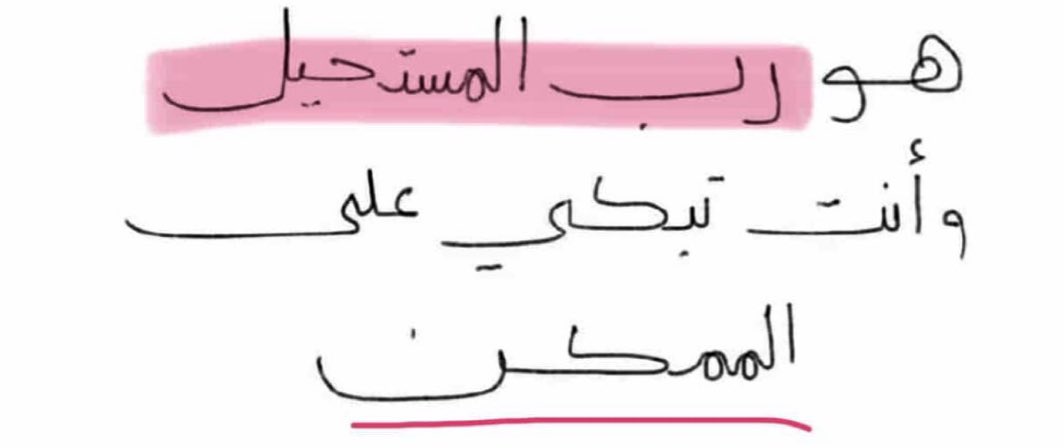 هو رب المستحيل
وأنت تبكي على
الممكن